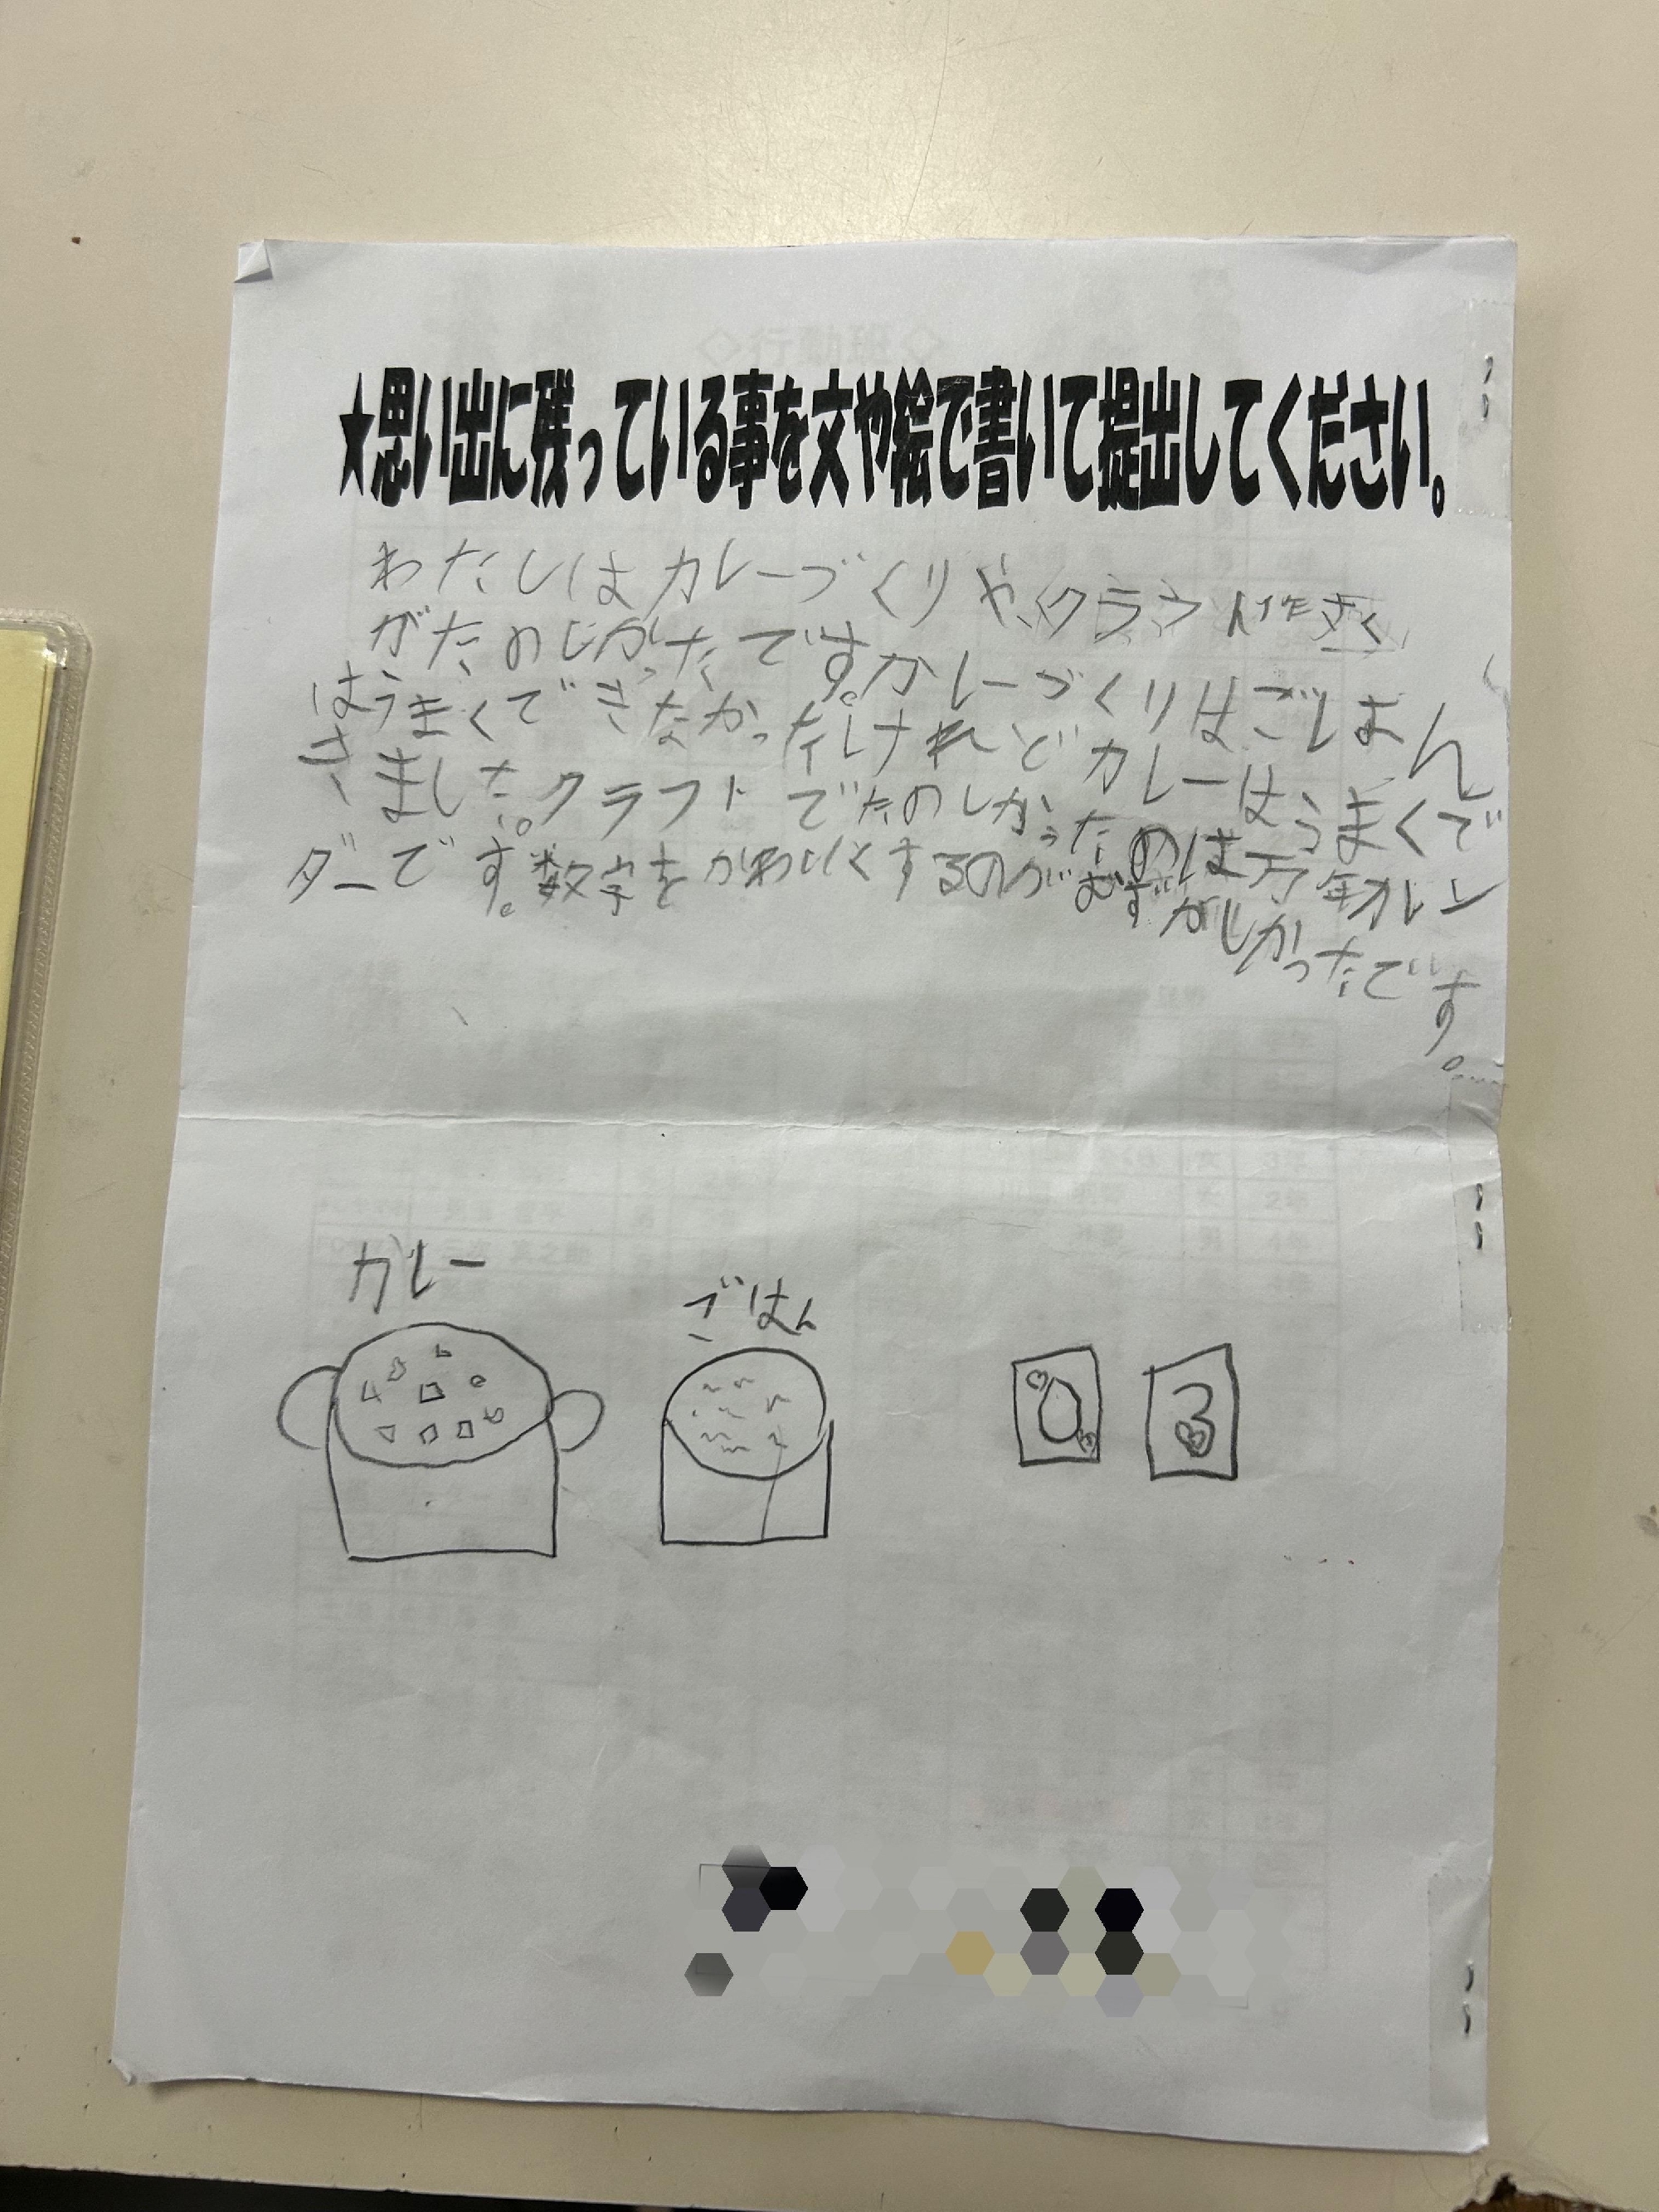 ★思い出に残っている事を文や絵で書いて提出してください。
わたしはカレーづくりや、クラフト作さく
がたのしかったです。カレーづくりはごはん
はうまくできなかったけれどカレーはうまくで
きました。クラフトでたのしかったのは万年カレン
ダーです。数字をかわいくするのがむずがしかったです。
カレー
ごはん
0 3